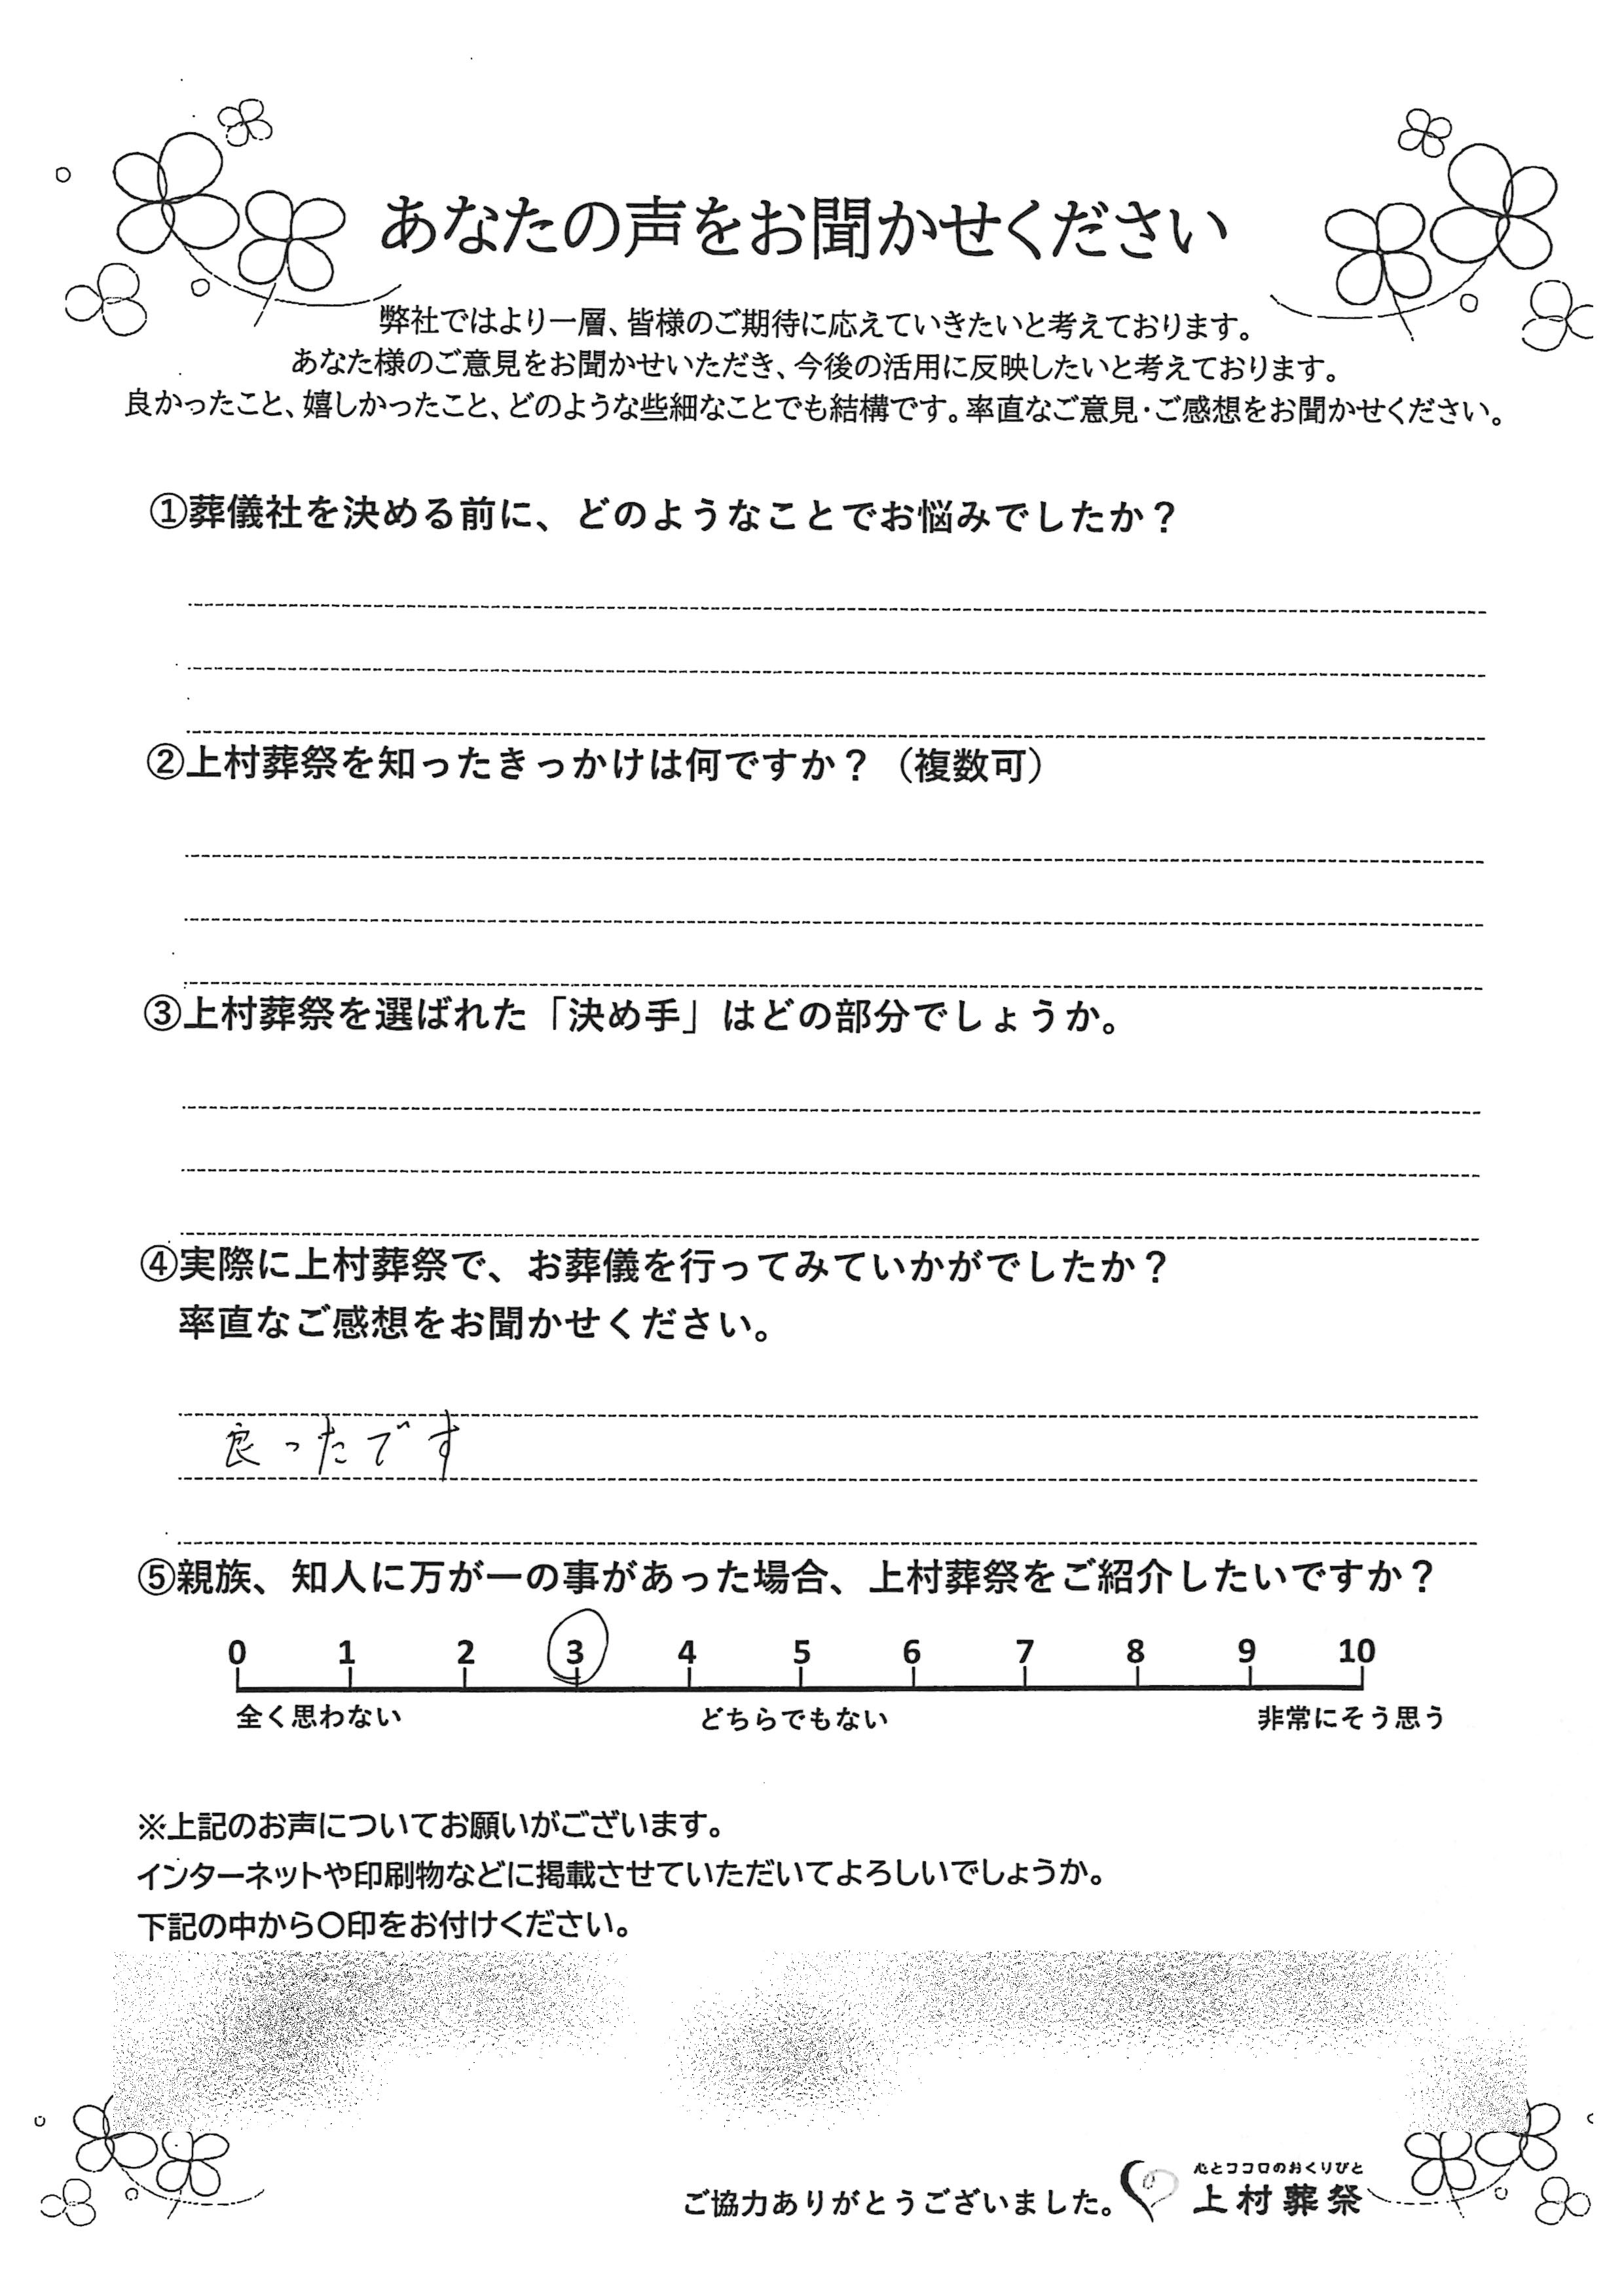 あなたの声をお聞かせください
弊社ではより一層、皆様のご期待に応えていきたいと考えております。
あなた様のご意見をお聞かせいただき、今後の活用に反映したいと考えております。
良かったこと、嬉しかったこと、どのような些細なことでも結構です。率直なご意見・ご感想をお聞かせください。
①葬儀社を決める前に、どのようなことでお悩みでしたか？
②上村葬祭を知ったきっかけは何ですか？（複数可）
③上村葬祭を選ばれた「決め手」はどの部分でしょうか。
④実際に上村葬祭で、お葬儀を行ってみていかがでしたか？
率直なご感想をお聞かせください。
良ったです
⑤親族、知人に万が一の事があった場合、上村葬祭をご紹介したいですか？
0 1 2 3 4 5 6 7 8 9 10
全く思わない どちらでもない 非常にそう思う
※上記のお声についてお願いがございます。
インターネットや印刷物などに掲載させていただいてよろしいでしょうか。
下記の中から〇印をお付けください。
心とココロのおくりびと
ご協力ありがとうございました。 上村葬祭